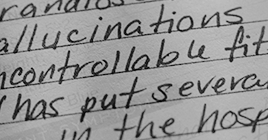 allucinations
ncontrollable fit
has put severa
in the hosp